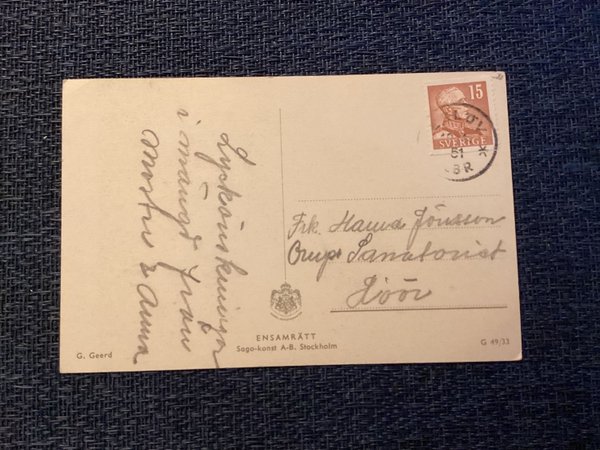 Lyckönskningar
i mängd från
Moster & Anna
15
SVERIGE
LÖV
51
BR
Frk. Hanna Jönsson
Orups Sanatoriet
Höör
ENSAMRÄTT
Sago-konst A-B. Stockholm
G. Geerd
G 49/33